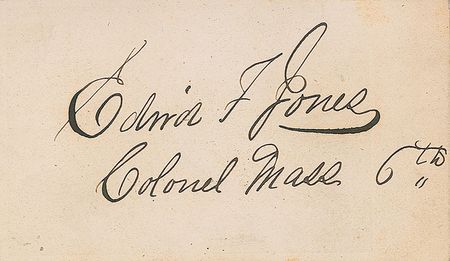 Edwd F Jones
Colonel Mass 6th "